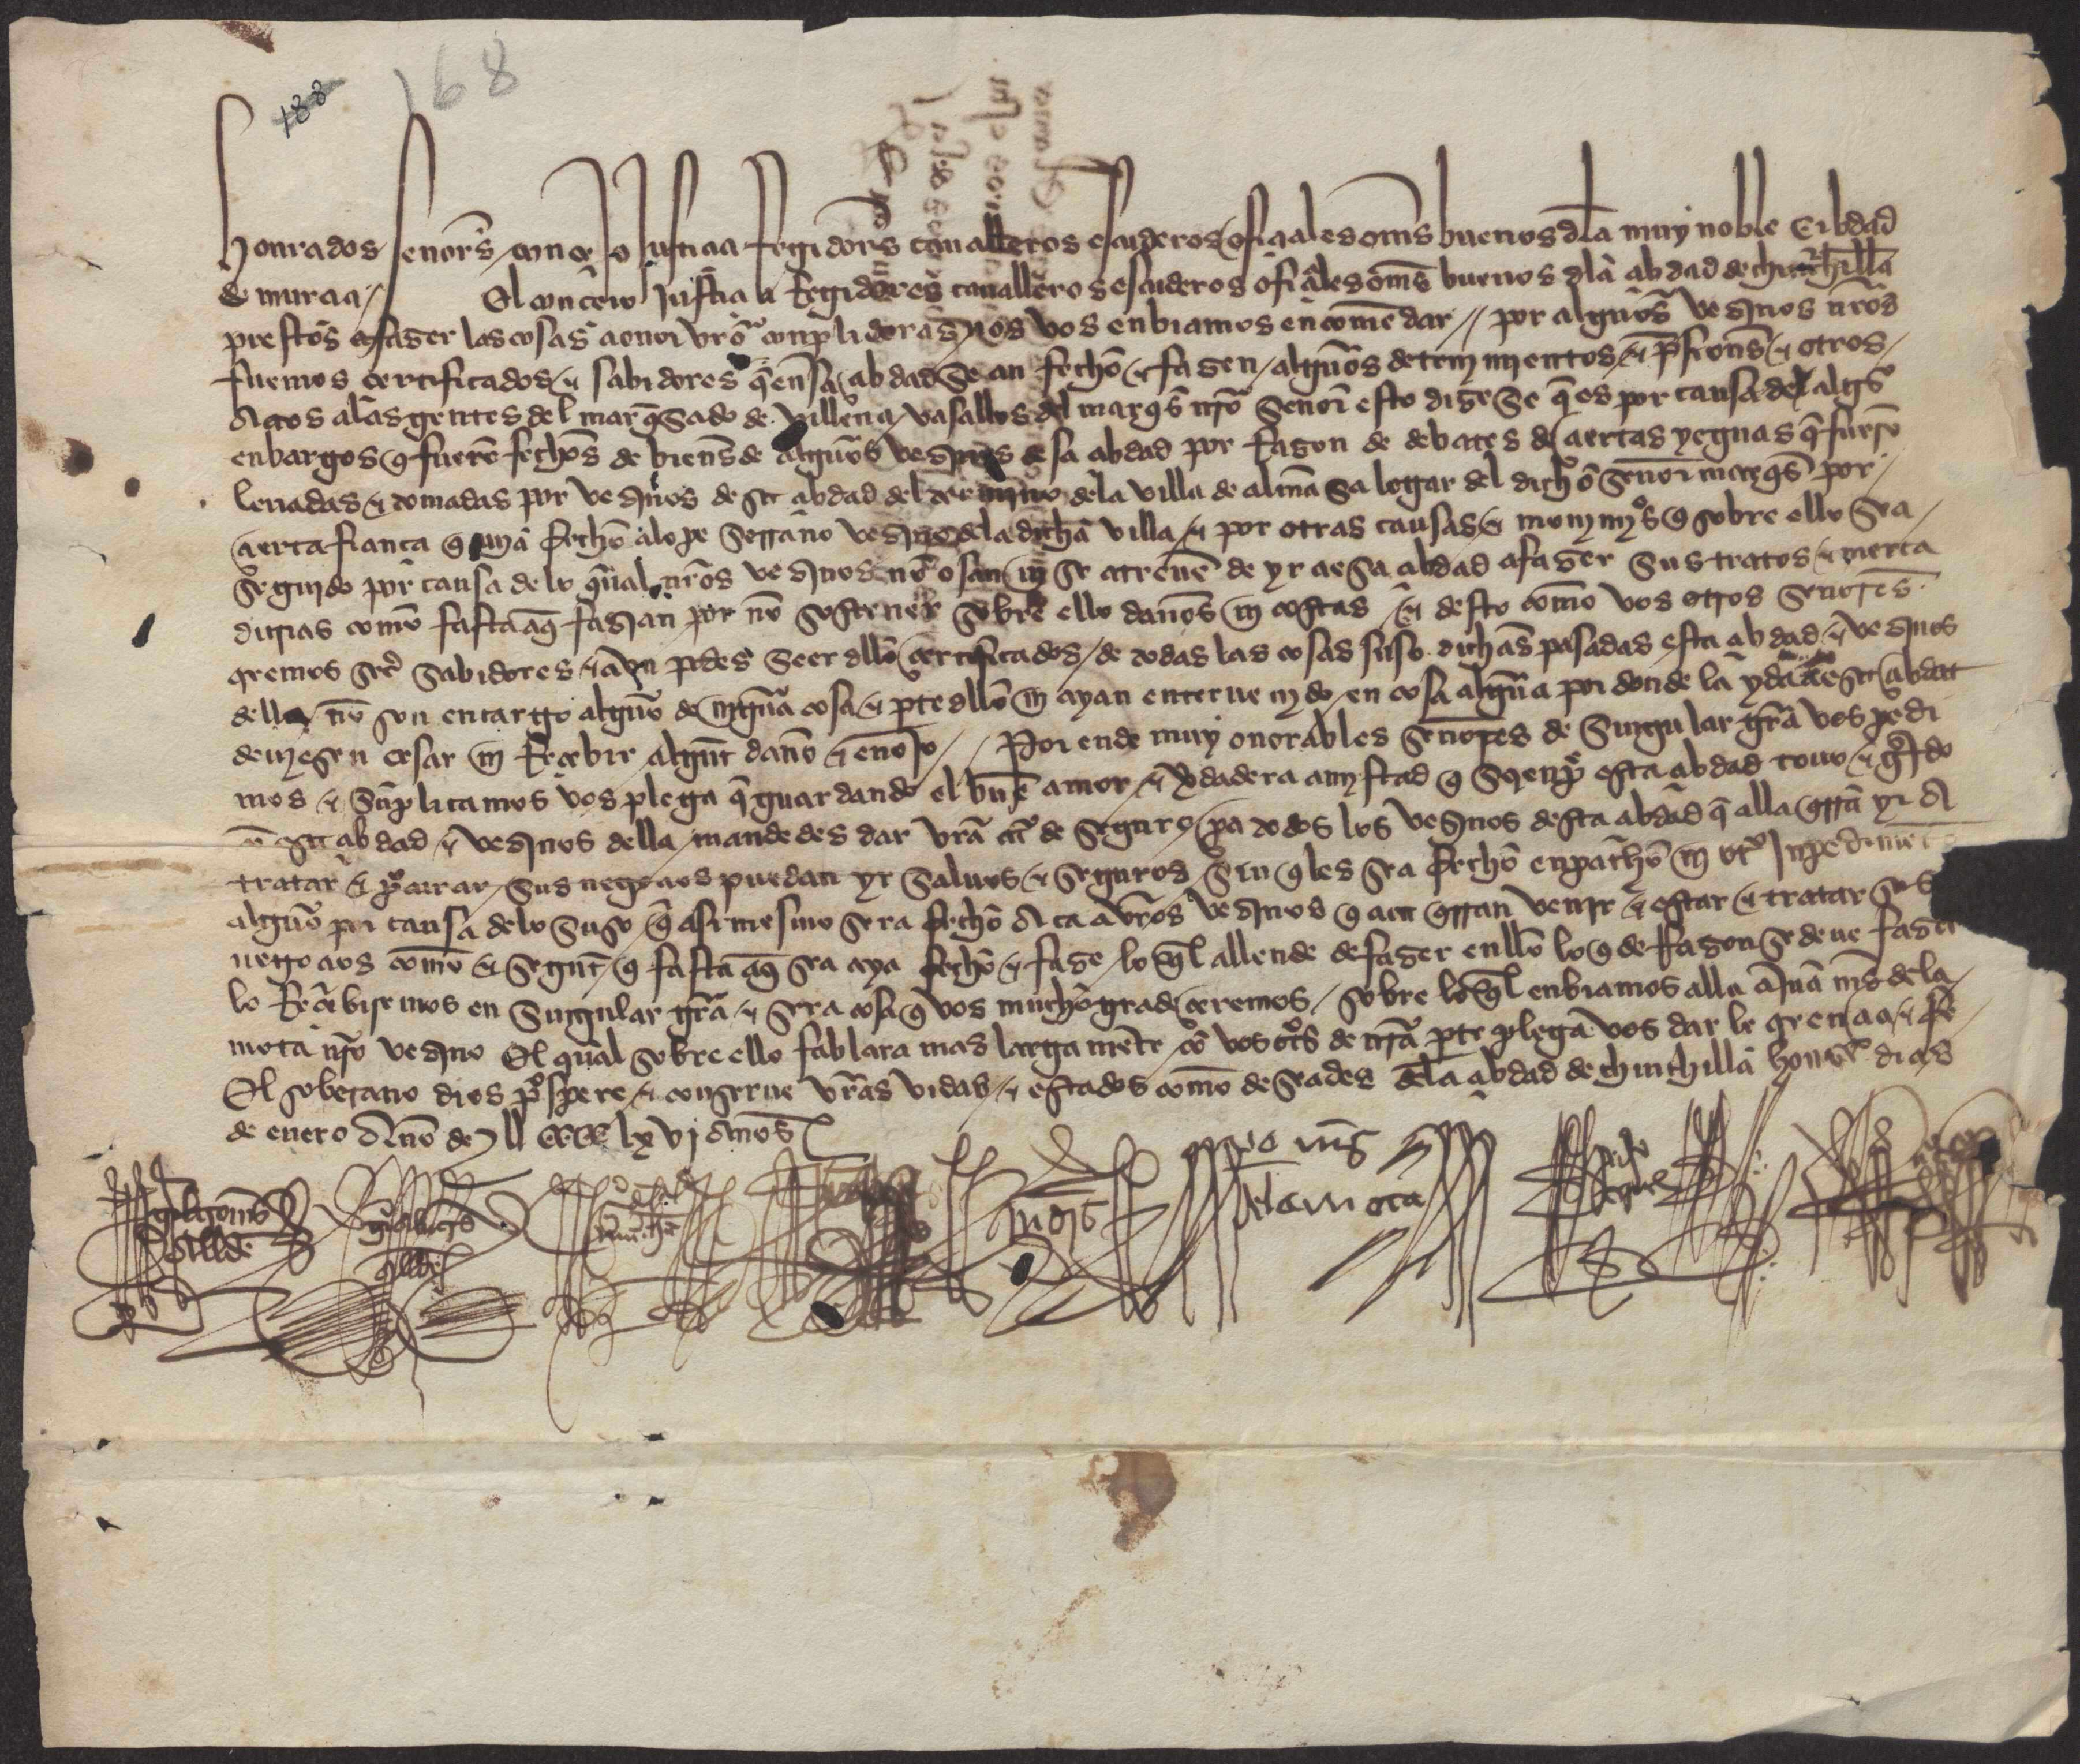 188
168
honrados senors conçejo Justiçia Regidors caualleros escuderos ofiçiales oms buenos dla muy noble Çibdad
de murçia / El conçeio Justiçia Regidores caualleros escuderos ofiçiales omes buenos dla çibdad de chinchilla
prestos a fazer las cosas a onor vro conplideras nos vos enbiamos encomendar // por algunos vezinos nros
fuemos certificados & sabidores q en esa çibdad se an fecho & fazen algunos detenimientos & prsiones & otros
Actos alas gentes del marqsado de villena vasallos del marqs nro senor esto dize se q es por causa de algs
enbargos q fueron fechos de bienes de algunos vezinos desa çibdad por Razon de debates de çiertas yeguas q fueron
leuadas & tomadas por vezinos desa çibdad del termino dela villa de almansa logar del dicho senor marqs por
çierta fiança q auia fecho a lope serrano vezino dela dicha villa & por otras causas & q sobre ello sea
seguido por causa delo qual nros vezinos no osan ni se atreuen de yr a esa çibdad a fazer sus tratos & merca
durias como fasta aq fazian por no sostener sobre ello danos ni costas & desto como vos otros senores
qremos ser sabidores & avn podes seer dllo certificados de todas las cosas suso dichas pasadas esta çibdad & vezinos
della no son encargo alguno de ninguna cosa & parte dllo ni ayan enteruenido en cosa alguna por donde la yda a esa çibdat
deuiesen cesar ni Reçebir algunt dano & enojo // Por ende muy onorables senores de Singular gra vos pedi
mos & suplicamos vos plega q guardando el buen amor & vdadera amistad q sienpre esta çibdad touo &
esa çibdad & vezinos della mandedes dar vra de seguro pa todos los vezinos desta çibdad q alla qrran yr A
tratar & procurar sus negoçios puedan yr saluos & seguros sin q les sea fecho enpacho ni otro Inpedimento
alguno por causa delo suso q asi mesmo sera fecho Aca a vros vezinos q aca qrran venir & estar & tratar sus
negoçios como & segunt q fasta aq sea aya fecho & faze lo ql allende de fazer en llo lo q de Razon se deue fazer
lo Reçibiremos en Singular gra & sera cosa q vos mucho gradeçeremos / sobre lo ql enbiamos alla a Juan ms dela
mota nro vezino El qual sobre ello fablara mas larga mente co vos otros de nra parte plega vos dar le qrençia & fe
El soberano dios prospere & conserue vras vidas & estados como deseades dela çibdad de chinchilla dias
de enero Ano de lxvj Anos
alcde
alcde
ms
dela mota